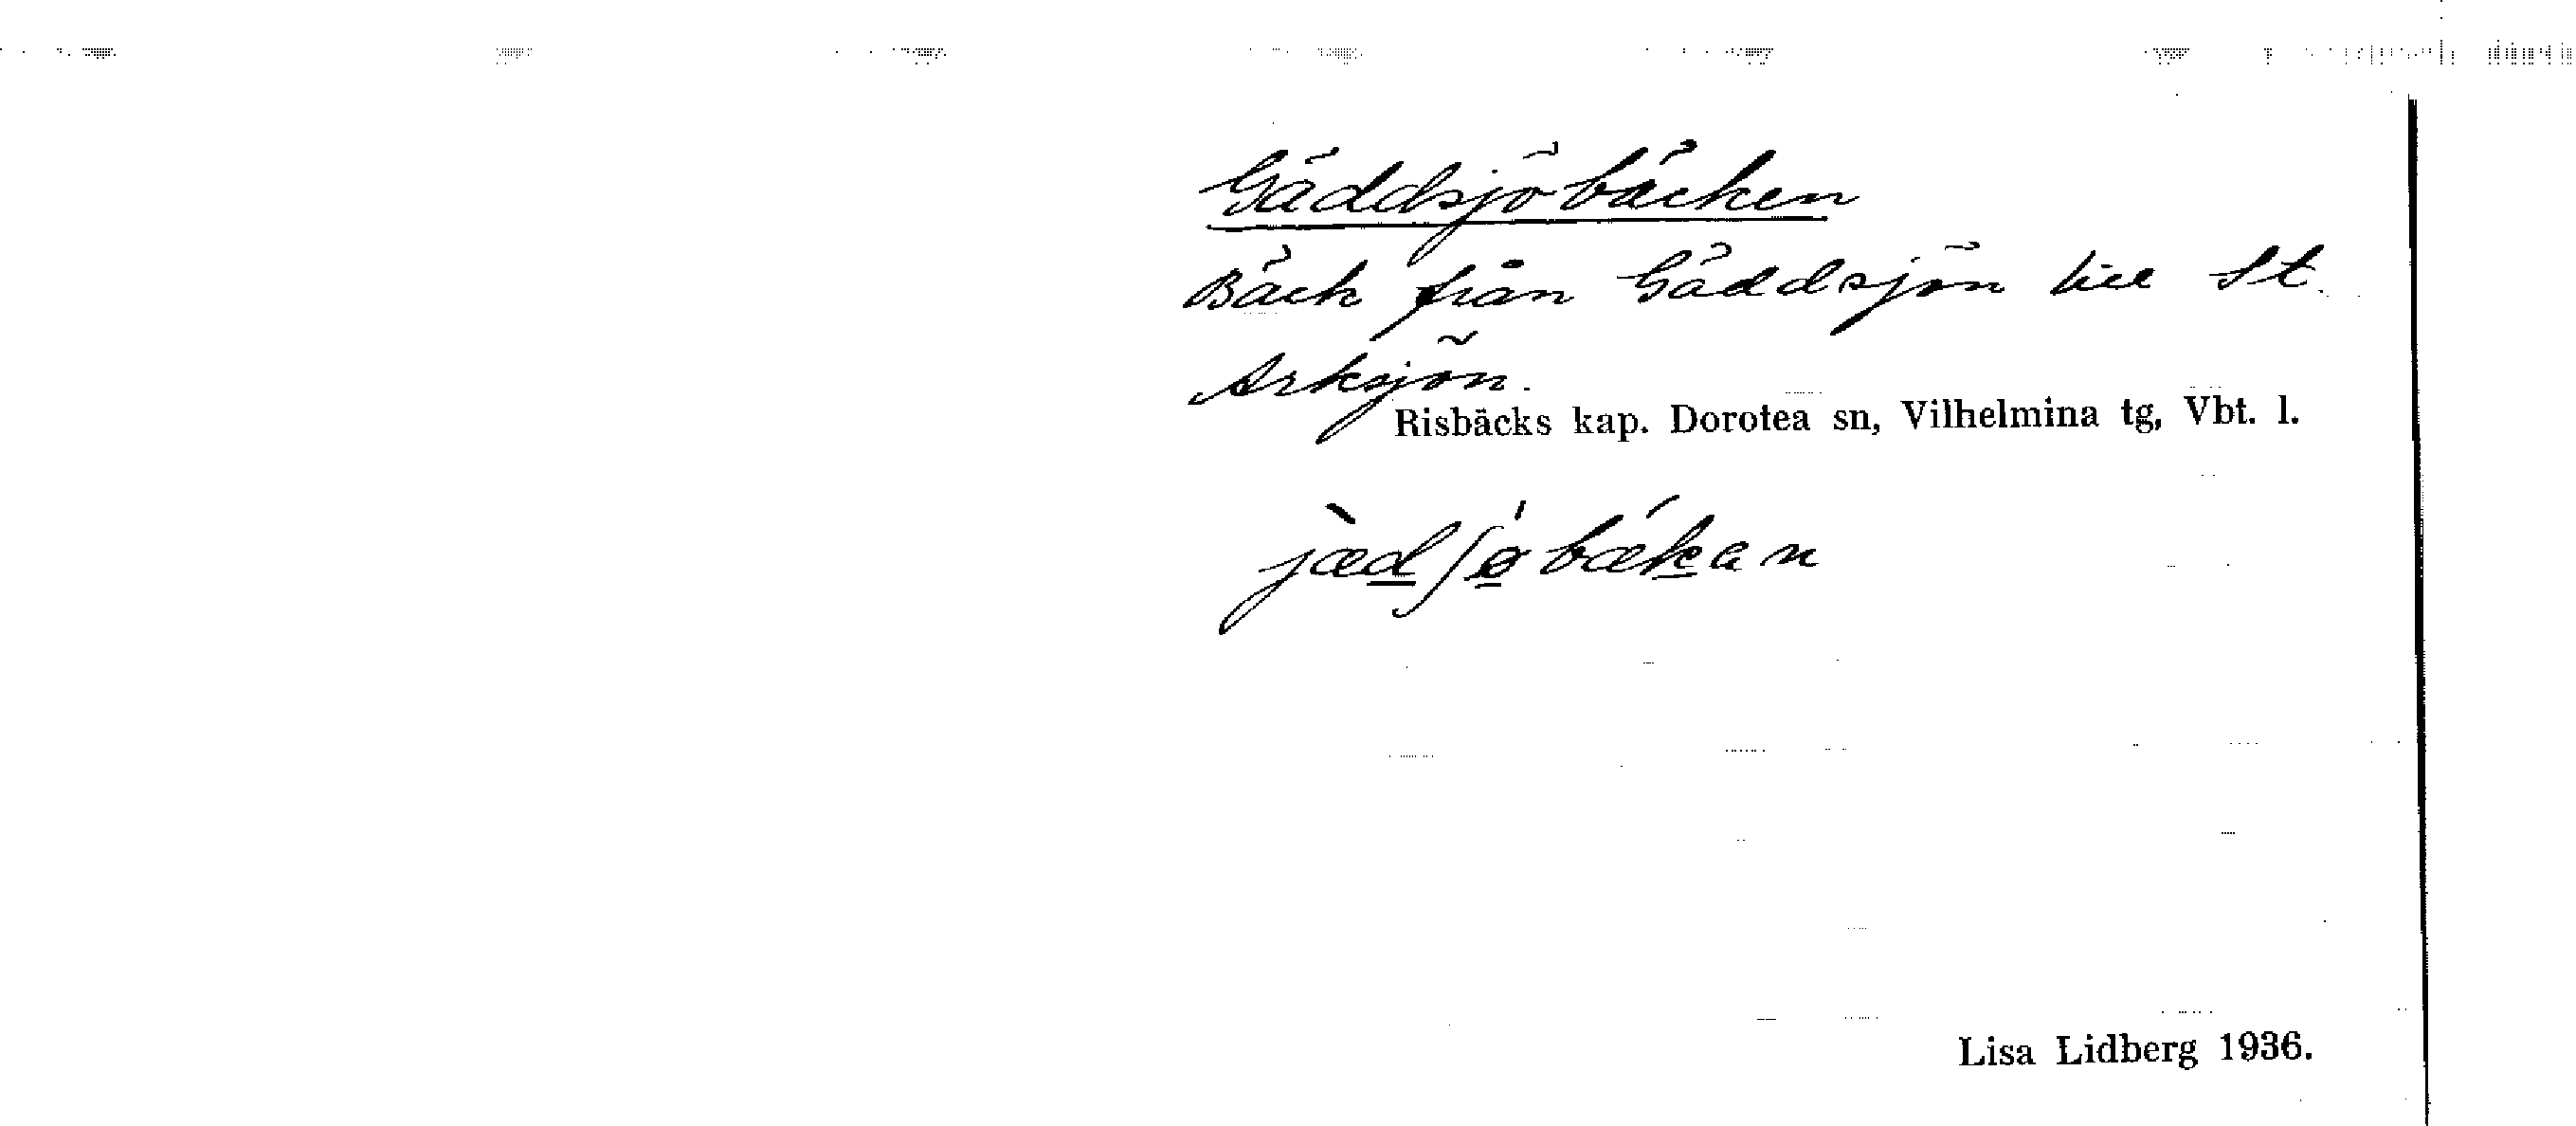 Gäddsjöbäcken
Bäck från Gäddsjön till St.
Arksjön.
Risbäcks kap. Dorotea sn, Vilhelmina tg, Vbt. l.
jæ̀dʃø̍bǽkan
Lisa Lidberg 1936.